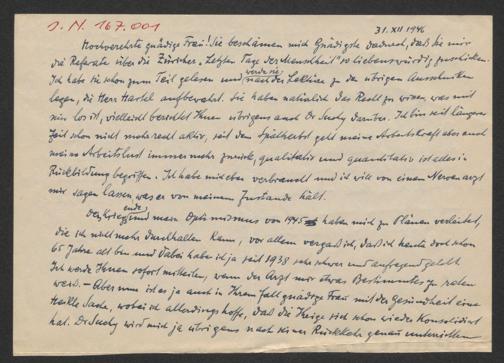 J.N. 167.001
31. XII 1946
Hochverehrte gnädige Frau! Sie beschämen mich Gnädigste dadurch, daß Sie mir
die Referate über die Züricher „Letzten Tage der Menschheit" so liebenswürdig zuschicken.
Ich habe sie schon zum Teil gelesen und werde sie nach der Lektüre zu den übrigen Ausschnitten
legen, die Herr Hartel aufbewahrt. Sie haben natürlich das Recht zu wissen, was mit
mir los ist, vielleicht berichtet Ihnen übrigens auch Dr Suchy darüber. Ich bin seit längerer
Zeit schon nicht mehr recht aktiv, seit dem Spätherbst geht meine Arbeitskraft aber auch
meine Arbeitslust immer mehr zurück, qualitativ und quantitativ ist alles in
Rückbildung begriffen. Ich habe mich eben verbraucht und ich will von einem Nervenarzt
mir sagen lassen, was er von meinem Zustande hält.
Das Kriegsende und mein Optimismus von 1945 haben mich zu Plänen verleitet,
die ich nicht mehr durchhalten kann, vor allem vergaß ich, daß ich heute doch schon
65 Jahre alt bin und dabei habe ich ja seit 1938 sehr schwer und aufregend gelebt
Ich werde Ihnen sofort mitteilen, wenn der Arzt mir etwas Bestimmtes zu raten
weiß. – Aber nun ist es ja auch in Ihrem Fall gnädige Frau mit der Gesundheit eine
heikle Sache, wobei ich allerdings hoffe, daß die Dinge sich schon wieder konsolidiert
hat. Dr Suchy wird mich ja übrigens nach seiner Rückkehr genau unterrichten